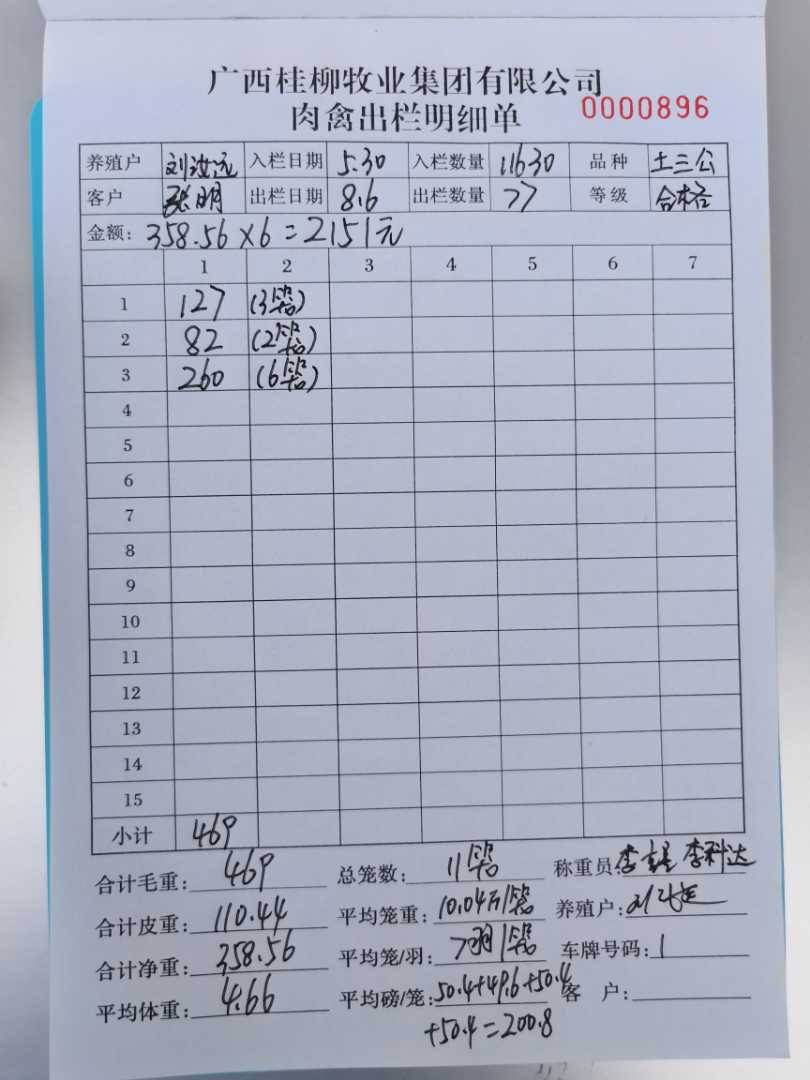 广西桂柳牧业集团有限公司
肉禽出栏明细单 0000896
养殖户 刘汝远 入栏日期 5.30 入栏数量 11630 品种 土三公
客户 张明 出栏日期 8.6 出栏数量 77 等级 合格
金额: 358.56×6=2151元
1 2 3 4 5 6 7
1 127 (3笼)
2 82 (2笼)
3 260 (6笼)
4
5
6
7
8
9
10
11
12
13
14
15
小计 469
合计毛重: 469 总笼数: 11笼 称重员: 李 李科达
合计皮重: 110.44 平均笼重: 10.04斤/笼 养殖户:
合计净重: 358.56 平均笼/羽: 7羽/笼 车牌号码:
平均体重: 4.66 平均磅/笼: 50.4+49.6+50.4 客 户:
+50.4=200.8